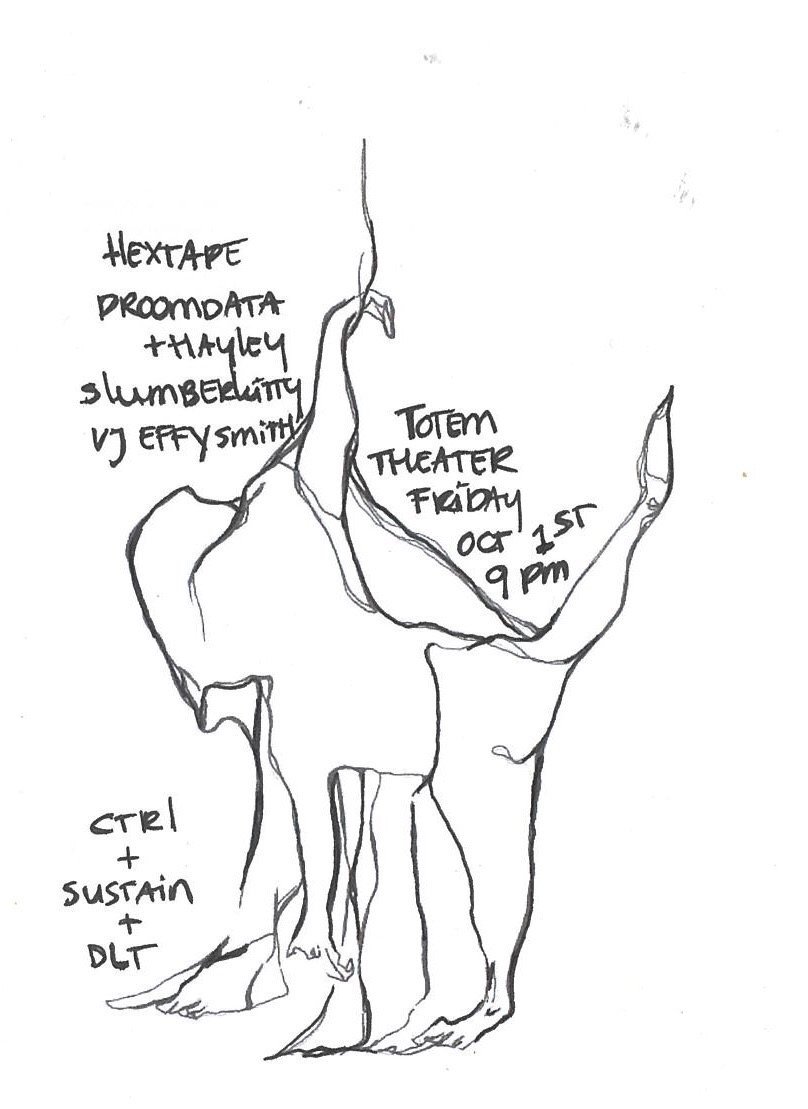 HEXTAPE
DROOMDATA
+HAYLEY
SlumBERkiTTy
VJ EFFY SmiTH
TOTEM
THEATER
FRiDAY
OCT 1ST
9 pm
CTRl
+
SUSTAiN
+
DLT